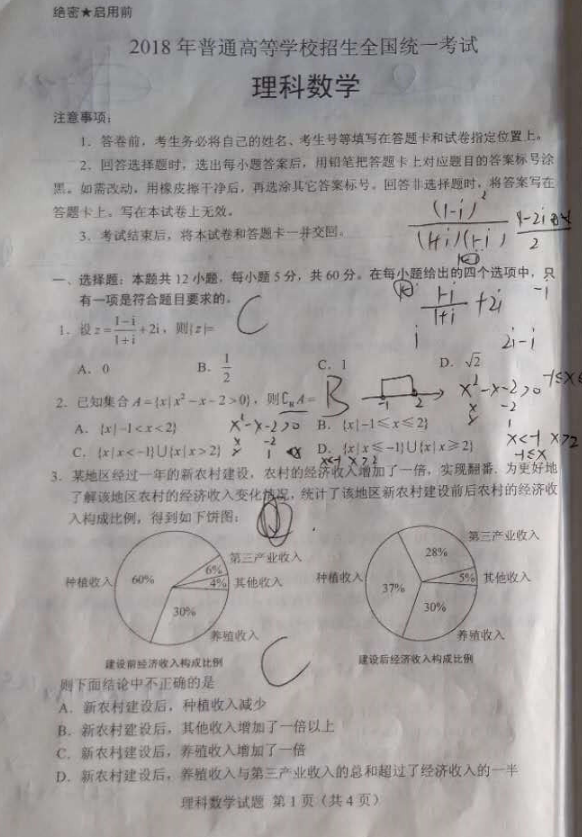 绝密★启用前
2018 年普通高等学校招生全国统一考试
理科数学
注意事项：
1．答卷前，考生务必将自己的姓名、考生号等填写在答题卡和试卷指定位置上。
2．回答选择题时，选出每小题答案后，用铅笔把答题卡上对应题目的答案标号涂
黑。如需改动，用橡皮擦干净后，再选涂其它答案标号。回答非选择题时，将答案写在
答题卡上。写在本试卷上无效。
3．考试结束后，将本试卷和答题卡一并交回。
(1-i)²
(1+i)(1-i)
2
一、选择题：本题共 12 小题，每小题 5 分，共 60 分。在每小题给出的四个选项中，只
有一项是符合题目要求的。
1-i
1+i
+2i
-1
1．设 z=(1-i)/(1+i)+2i，则|z|=
C
i
2i-i
A．0 B．1/2 C．1 D．√2
2．已知集合 A={x|x²-x-2>0}，则∁RA=
B
-1 2
x²-x-2>0
A．{x|-1<x<2} B．{x|-1≤x≤2}
x²-x-2>0
C．{x|x<-1}∪{x|x>2} D．{x|x≤-1}∪{x|x≥2}
x<-1 x>2
x<-1 x>2
3．某地区经过一年的新农村建设，农村的经济收入增加了一倍，实现翻番．为更好地
了解该地区农村的经济收入变化情况，统计了该地区新农村建设前后农村的经济收
入构成比例，得到如下饼图：
第三产业收入
6%
种植收入 60% 4% 其他收入
30%
养殖收入
建设前经济收入构成比例
第三产业收入
28%
种植收入 37% 5% 其他收入
30%
养殖收入
建设后经济收入构成比例
C
则下面结论中不正确的是
A．新农村建设后，种植收入减少
B．新农村建设后，其他收入增加了一倍以上
C．新农村建设后，养殖收入增加了一倍
D．新农村建设后，养殖收入与第三产业收入的总和超过了经济收入的一半
理科数学试题 第 1 页（共 4 页）